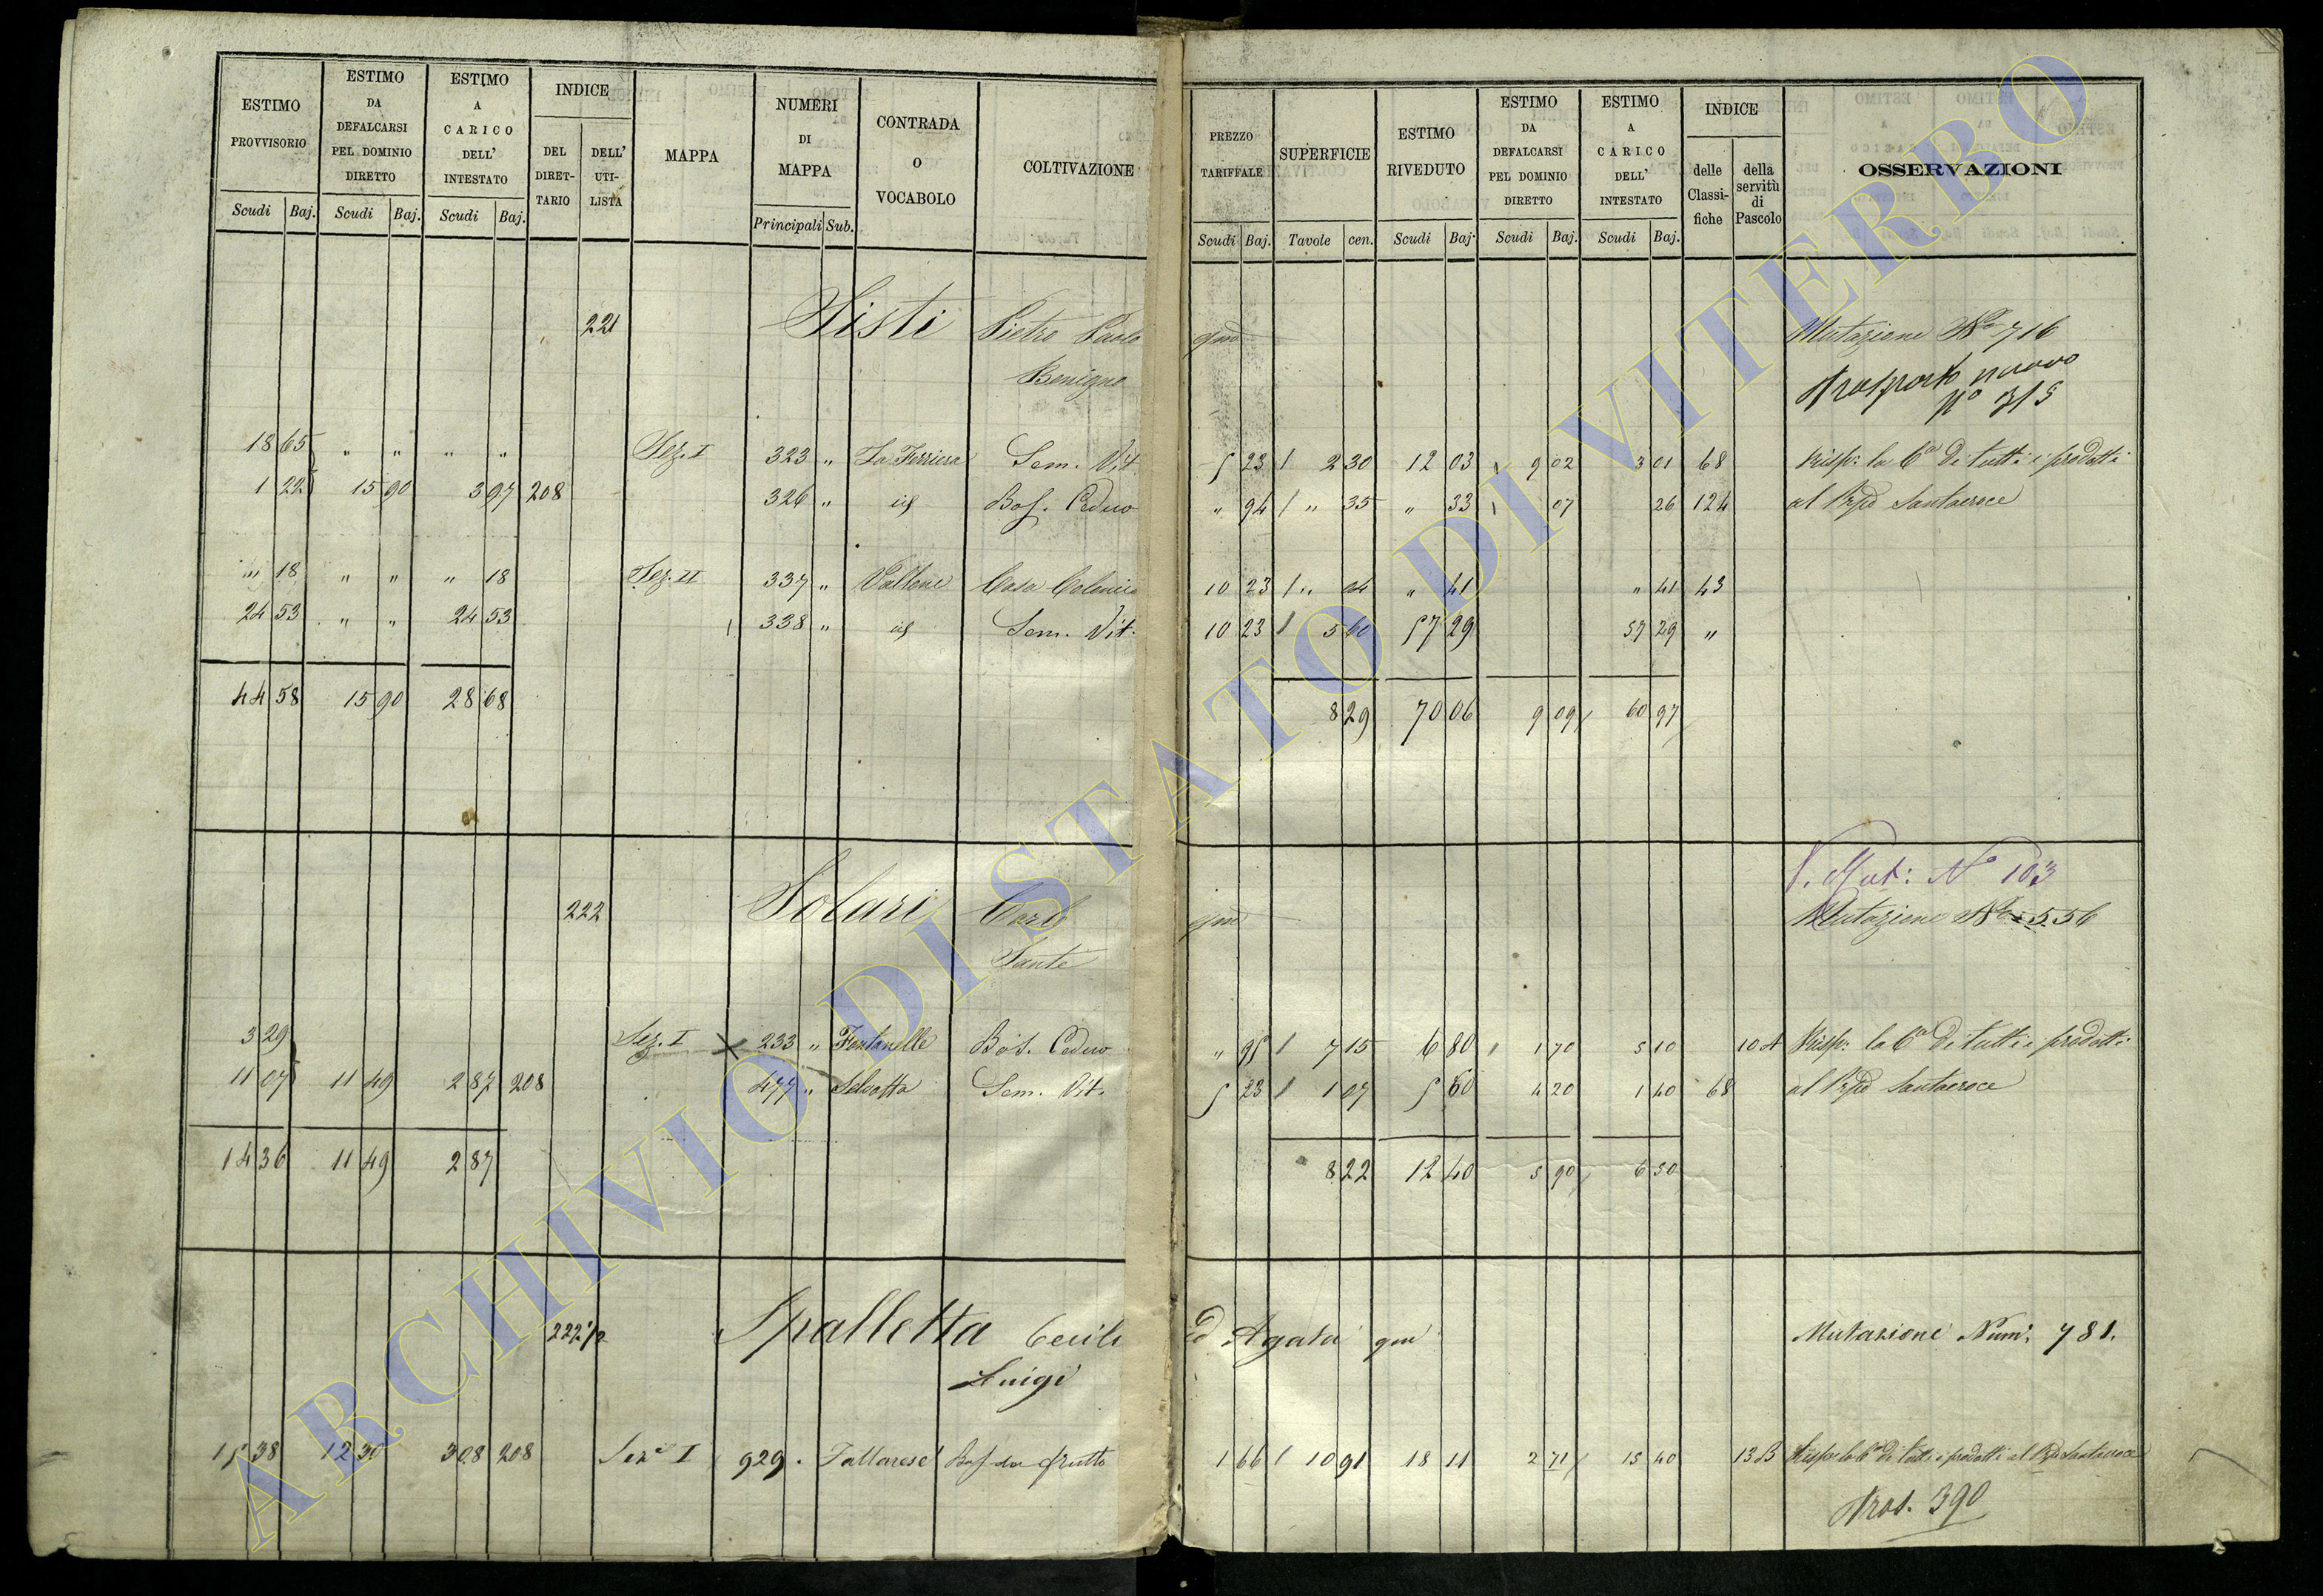 ESTIMO PROVVISORIO
ESTIMO DA DEFALCARSI PEL DOMINIO DIRETTO
ESTIMO A CARICO DELL' INTESTATO
INDICE
DEL DIRET- TARIO
DELL' UTI- LISTA
MAPPA
NUMERI DI MAPPA
CONTRADA O VOCABOLO
COLTIVAZIONE
PREZZO TARIFFALE
SUPERFICIE
ESTIMO RIVEDUTO
ESTIMO DA DEFALCARSI PEL DOMINIO DIRETTO
ESTIMO A CARICO DELL' INTESTATO
INDICE
delle Classi- fiche
della servitù di Pascolo
OSSERVAZIONI
Scudi Baj. Scudi Baj. Scudi Baj. Principali Sub. Scudi Baj. Tavole cen. Scudi Baj. Scudi Baj. Scudi Baj.
221 Sisti Pietro Paolo qm Mutazione No 716
Benigno Trasporto nuovo
No 315
18 65 " " " " Sez. I 323 " La Ferriera Sem. Vit. 5 23 2 30 12 03 9 02 3 01 68 Risp: la Ca di tutti i prodotti
1 22 15 90 3 97 208 326 " id Bos. Ceduo " 94 " 35 " 33 07 26 124 al Santacroce
" 18 " " " 18 Sez. II 337 " Vallone Casa Colonica 10 23 " 04 " 41 " 41 43
24 53 " " 24 53 338 " id Sem. Vit. 10 23 5 60 57 29 57 29 "
44 58 15 90 28 68 8 29 70 06 9 09 60 97
V. Mut: No 103
222 Solari Carlo qm Mutazione No 556
Sante
3 29 Sez. I 233 " Fontanelle Bos. Ceduo " 95 7 15 6 80 1 70 5 10 10 A Risp: la Ca di tutti i prodotti
11 07 11 49 2 87 208 477 " Selvotta Sem. Vit. 5 23 1 07 5 60 4 20 1 40 68 al Santacroce
14 36 11 49 2 87 8 22 12 40 5 90 6 50
222 1/2 Spalletta Cecili ed Agata qm Mutazione Num: 781.
Luigi
15 38 12 30 3 08 208 Seze I 929 . Tallarese Bos. da frutto 1 66 10 91 18 11 2 71 15 40 13 B Risp: la Ca di tutti i prodotti al Santacroce
Tras. 390
ARCHIVIO DI STATO DI VITERBO